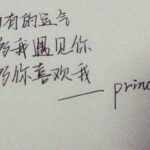 有的运气
我遇见你
你喜欢我
—— prin